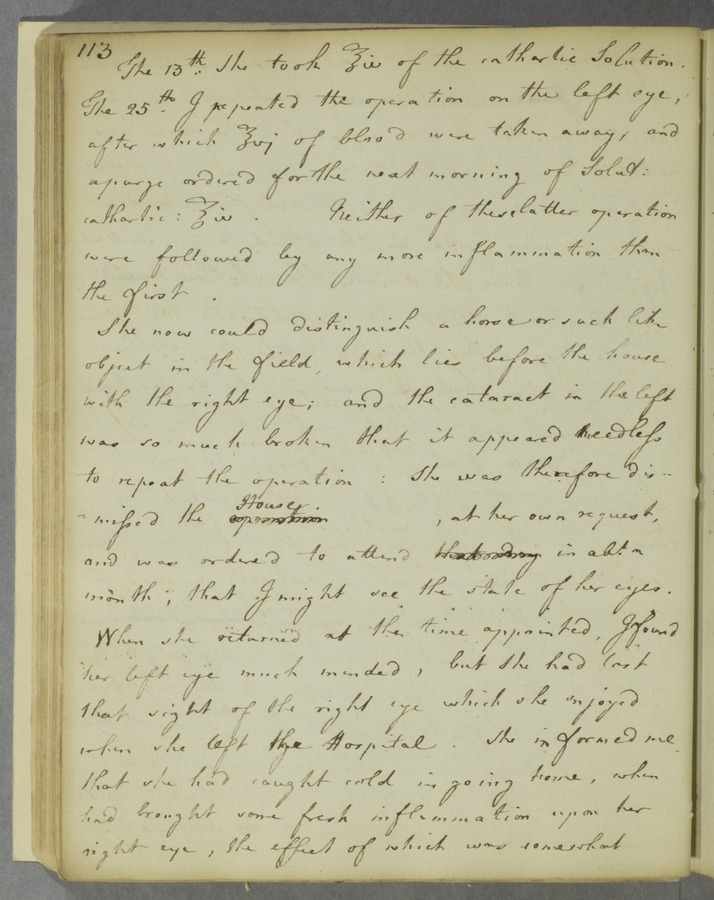 113
The 13th. She took ℥iv of the cathartic Solution.
The 25th I repeated the operation on the left eye,
after which ℥vj of blood were taken away, and
a purge ordered for the next morning of Solut:
cathartic: ℥iv. Neither of these latter operation
were followed by any more inflammation than
the first.
She now could distinguish a horse or such like
object in the field, which lies before the house
with the right eye; and the cataract in the left
was so much broken that it appeared needless
to repeat the operation: She was therefore dis-
House.
-missed the operation, at her own request,
and was ordered to attend in abt. a
month, that I might see the state of her eyes.
When she returned at the time appointed, I found
her left eye much mended, but she had lost
that sight of the right eye which she enjoyed
when she left the Hospital. She informed me
that she had caught cold in going home, when
had brought some fresh inflammation upon her
right eye, the effect of which was somewhat